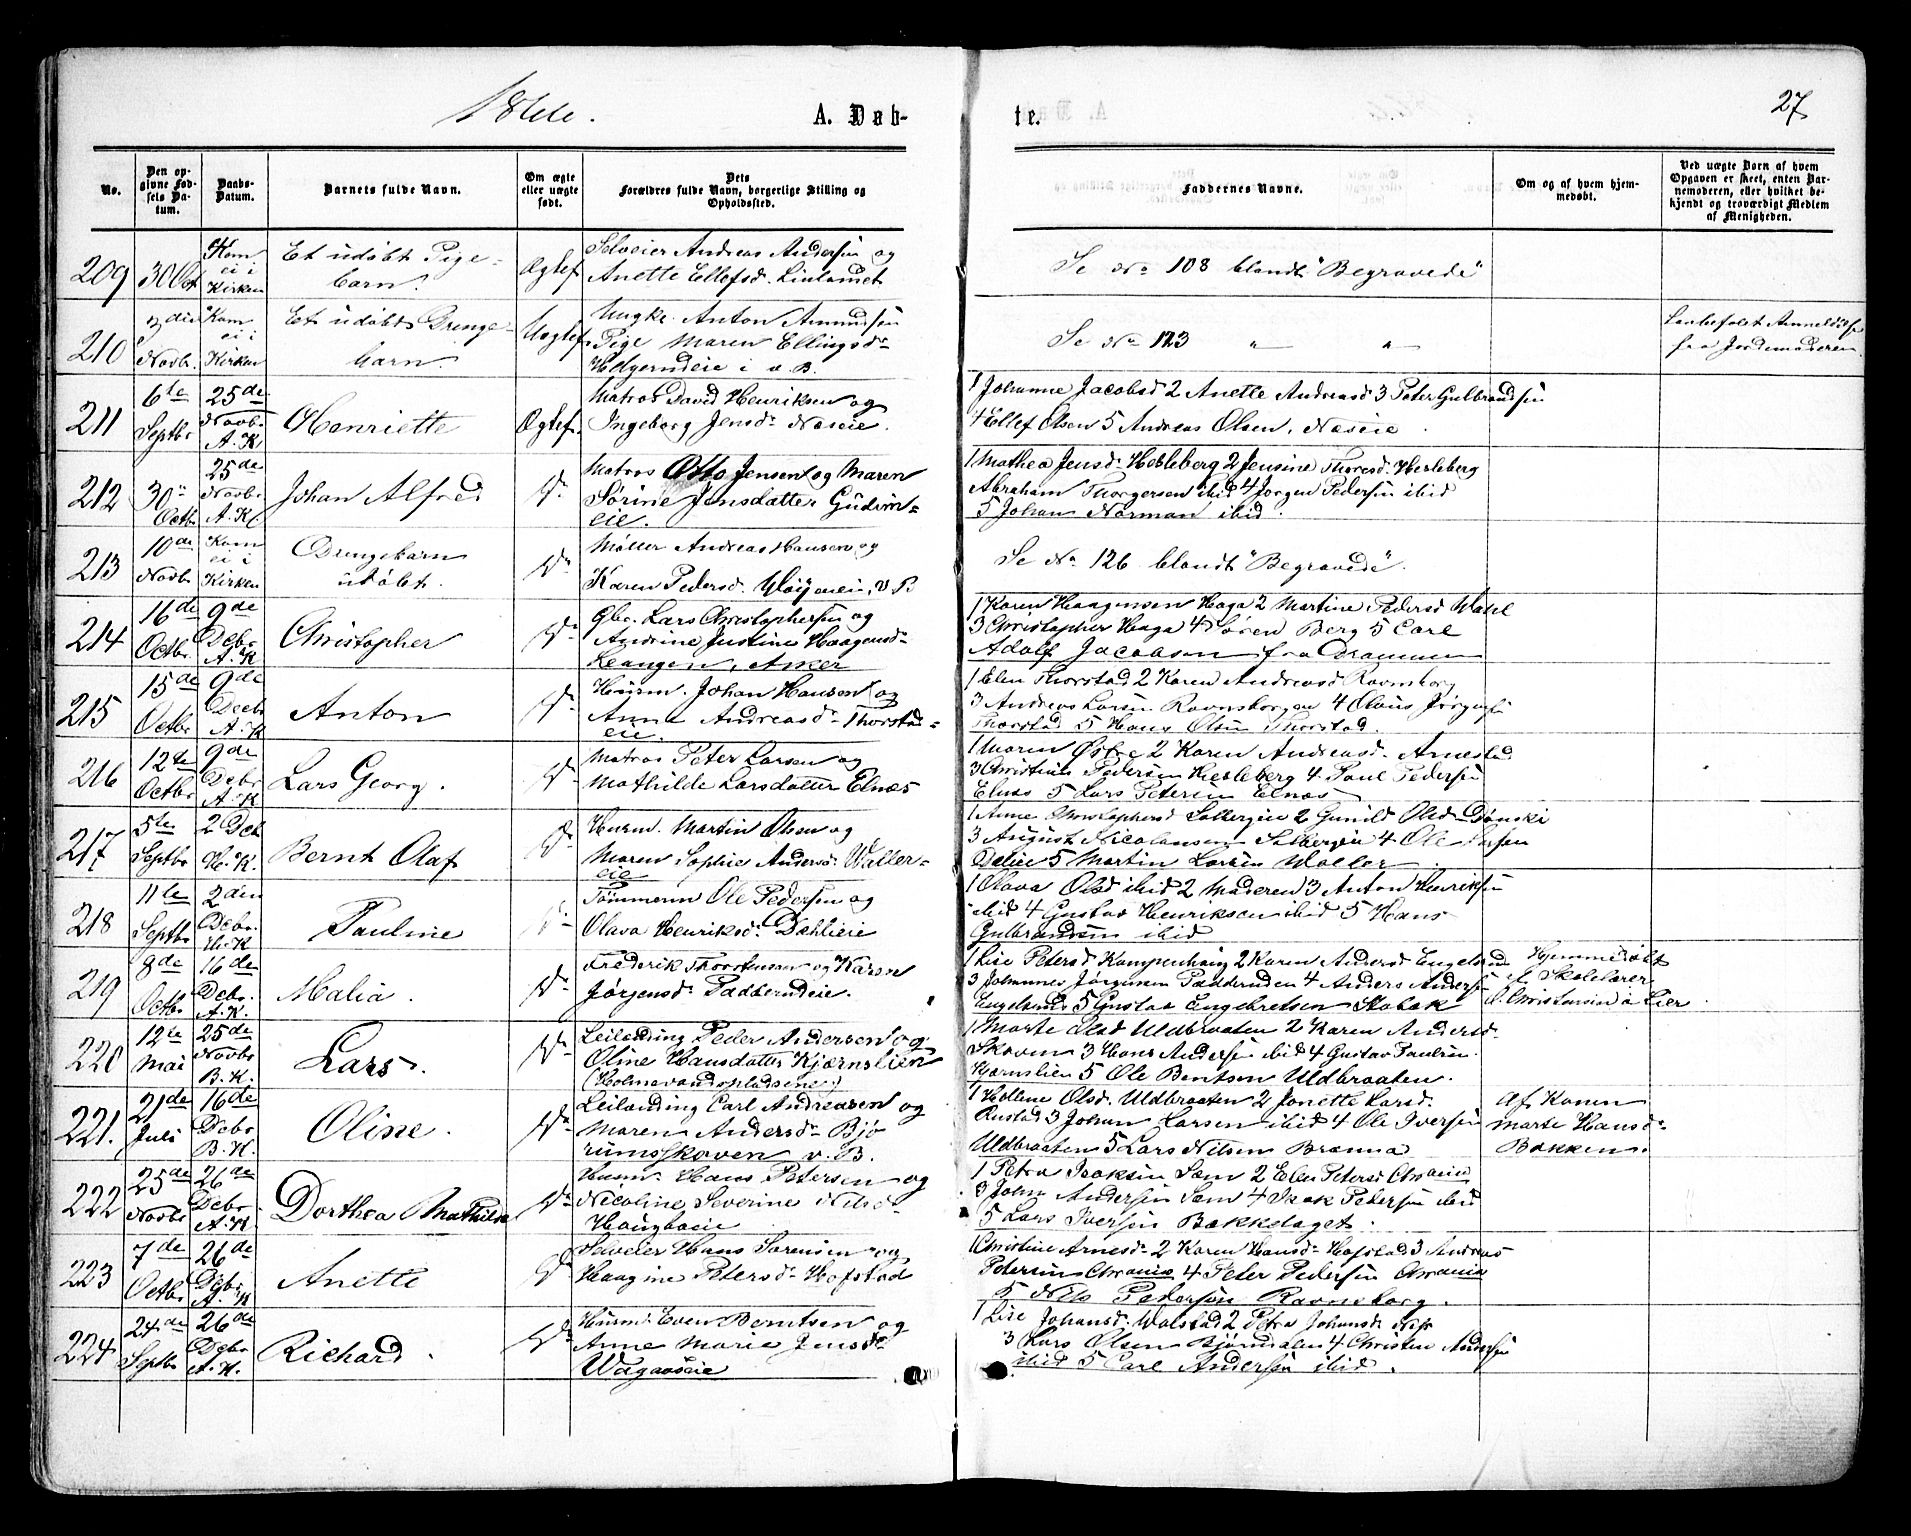 1866.
A. Døb-
te.
27
No.
Den opgivne Fødsels Datum.
Daabs-Datum.
Barnets fulde Navn.
Om ægte eller uægte født.
Dets Forældres fulde Navn, borgerlige Stilling og Opholdssted.
Faddernes Navne.
Om og af hvem hjemmedøbt.
Ved uægte Barn af hvem Opgaven er skeet, enten Barnemoderen, eller hvilket bekjendt og troværdigt Medlem af Menigheden.
209
30 Oct
Kom ei i Kirken
Et udøbt Pige-
barn.
Ægtef
Selveier Andreas Andersen og
Anette Ellefsd.
Se No 108 blandt "Begravede"
210
3die Novbr.
Kom ei i Kirken
Et udøbt Drenge-
barn.
Uægtef.
Ungke. Anton Amundsen
Pige Maren Ellingsdr
i v. B.
Se No 123 " "
Jordemoderen
211
6te Septbr
25de Novbr. A. K
Henriette
Ægtef.
Matros David Henriksen og
Ingeborg Jensdr Næseie.
1 Johanne Jacobsd 2 Anette Andreasd 3 Peter Gulbrandsen
4 Ellef Olsen 5 Andreas Olsen, Næseie
212
30te Octbr
25de Novbr. A. K
Johan Alfred
Do
Matros Otto Jensen og Maren
Sørine Jensdatter Gudim=
eie.
1 Mathea Jensdr Hesleberg 2 Jensine Thoresd. Hesleberg
Abraham Thorgersen ibid 4 Jørgen Pedersen ibid
5 Johan Norman ibid.
213
10de Novbr
Kom ei i Kirken
Drengebarn
udøbt.
Do
Møller Andreas Hansen og
Karen Pedersd. V B
Se No 126 blandt "Begravede".
214
16de Octbr.
9de Debr A. K
Christopher
Do
Gbr. Lars Christophersen og
Andrine Justine Haagensdr
Leangen, Asker
1 Karen Haagensen Haga 2 Martine Pedersd
3 Christopher Haga 4 Søren Berg 5 Carl
Adolf Jacobsen fra Drammen
215
15de Octbr
9de Decbr A. K
Anton
Do
Husm. Johan Hansen og
Anne Andreasdr Thorstad=
eie.
1 Elen Thorstad 2 Karen Andreasd Ravnsborg
3 Andreas Larsen Ravnsborgen 4 Olaus Jørgensen
Thorstad 5 Hans Olsen Thorstad.
216
12te Octbr
9de Debr A. K
Lars Georg.
Do
Matros Peter Larsen og
Mathilde Larsdatter Elnæs
1 Maren Østre 2 Karen Andreasd. Arnestad
3 Christian Pedersen Hesleberg 4 Paul Pedersen
Elnæs 5 Lars Petersen Elnæs
217
5te Septbr
2 Deb. H. K.
Bernt Olaf
Do
Husm. Martin Olsen og
Maren Sophie Andersdr Waller-
eie
1 Anne Christophersd Solbergeie 2 Gunild Olsd
3 August Nicolausen Solbergeie 4 Ole Larsen
5 Martin Larsen Waller.
218
11te Septbr
2den Debr. H. K
Pauline
Do
Tømmerm Ole Pedersen og
Olava Henriksdr Dahlieie
1 Olava Olsd ibid 2 Moderen 3 Anton Henriksen
ibid 4 Gustav Henriksen ibid 5 Hans
Gulbrandsen ibid
219
8de Octbr
16de Debr. A. K.
Malia.
Do
Frederik Thorstensen og Karen
Jørgensdr Padderudeie.
1 Lise Petersd Kampenhaug 2 Karen Andersd Engelsrud
3 Johannes Jørgensen Padderuden 4 Anders Andersen
Engelsrud 5 Gustav Engebretsen Stobak
Hjemmedøbt
af Skolelærer
O. Christensen i Lier.
220
12te Mai
25de Novbr B. K.
Lars.
Do
Leilending Peder Andersen og
Oline Hansdatter Kjærnslien
(Holmevandspladsene)
1 Marte Olsd Uldbraaten 2 Karen Andersdr
Skoven 3 Hans Andersen ibid 4 Gustav Paulsen
Kjærnslien 5 Ole Bentsen Uldbraaten.
221.
21de Juli
16de Debr. B. K.
Oline.
Do
Leilending Carl Andreasen og
Maren Andersdr Bjø
rumsskoven v. B.
1 Hellene Olsd. Uldbraaten 2 Jonette Larsd.
Rustad 3 Johan Larsen ibid 4 Ole Iversen
Uldbraaten 5 Lars Nilsen Brenna
Af Konen
Marte Hansdr
Bakken.
222
25de Novbr
26de Debr A. K.
Dorthea Mathilde
Do
Husm. Hans Petersen og
Nicoline Severine Nilsdr
Haugbøeie
1 Petra Isaksen Sem 2 Elen Petersd
3 John Andersen Sem 4 Isak Petersen ibid
5 Lars Iversen Bakkelaget.
223
7de Octbr
26de Debr A. K
Anette
Do
Selveier Hans Sørensen og
Haagine Petersdr Hofstad
1 Christine Arnesdr 2 Karen Hansdr Hofstad 3 Andreas
Petersen 4 Peter Pedersen
5 Nils Pedersen Ravnsborg.
224
24de Septbr
26de Debr A. K.
Richard.
Do
Husm. Even Berntsen og
Anne Marie Jensdr
1 Lise Johansdr Walstad 2 Petra Johansdr
3 Lars Olsen Bjørndalen 4 Christen Andersen
ibid 5 Carl Andersen ibid.